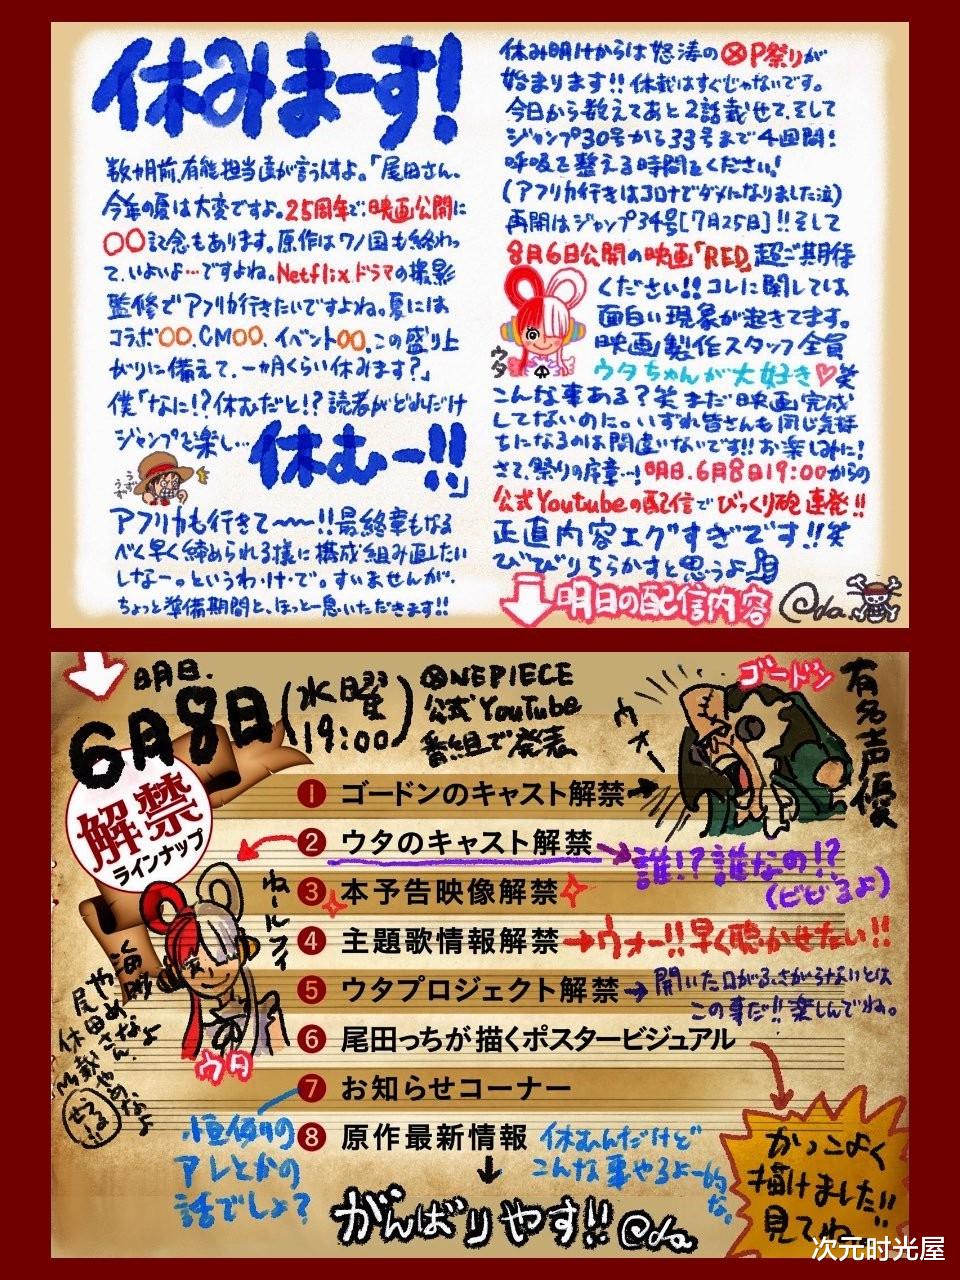 休みまーす!
数カ月前、有能担当達が言うんすよ。「尾田さん、
今年の夏は大変ですよ。25周年で、映画公開に
〇〇記念もあります。原作はワノ国も終わっ
て、いよいよ…ですよね。Netflixドラマの撮影
監修でアフリカ行きたいですよね。夏には
コラボ〇〇、CM〇〇、イベント〇〇、この盛り上
がりに備えて、一カ月くらい休みます?」
僕「なに!?休むだと!?読者がどれだけ
ジャンプを楽し…休むー!!」
うず
うず
アフリカも行きて〜〜!!最終章もなる
べく早く締められる様に構成組み直したい
しなー。というわ・け・で。すいませんが、
ちょっと準備期間と、ほっと一息いただきます!!
休み明けからは怒涛のOP祭りが
始まります!!休載はすぐじゃないです。
今日から数えてあと2話載せて、そして
ジャンプ30号から33号まで4週間!
呼吸を整える時間をください!
(アフリカ行きはコロナでダメになりました泣)
再開はジャンプ34号[7月25日]!!そして
8月6日公開の映画「RED」超ご期待
ください!!コレに関しては
面白い現象が起きてます。
映画製作スタッフ全員
ウタちゃんが大好き♡笑
ウタ
こんな事ある?笑 まだ映画完成
してないのに。いずれ皆さんも同じ気持
ちになるのは間違いないです!!お楽しみに!
さて、祭りの序章…!明日、6月8日19:00からの
公式Youtubeの配信でびっくり砲連発!!
正直内容エグすぎです!!笑
びびりちらかすと思うよ
明日の配信内容
Oda
明日、
6月8日(水曜 19:00)
ONEPIECE
公式YouTube
番組で発表
ゴードン
有名声優
ウオー
解禁
ラインナップ
1 ゴードンのキャスト解禁→
2 ウタのキャスト解禁
誰!?誰なの!?
(ビビるよ)
3 本予告映像解禁
4 主題歌情報解禁→ウオー!!早く聴かせたい!!
5 ウタプロジェクト解禁→開いた口がふさがらないとは
この事だ!!楽しんでね。
6 尾田っちが描くポスタービジュアル
7 お知らせコーナー
8 原作最新情報
ねールフィ
ウタ
海賊
やめなよ
尾田さん、
休載やめなよ
恒例の
アレとかの
話でしょ?
休むんだけど
こんな事やるよー的な。
かっこよく
描けました!!
見てね
がんばりやす!! Oda
次元时光屋